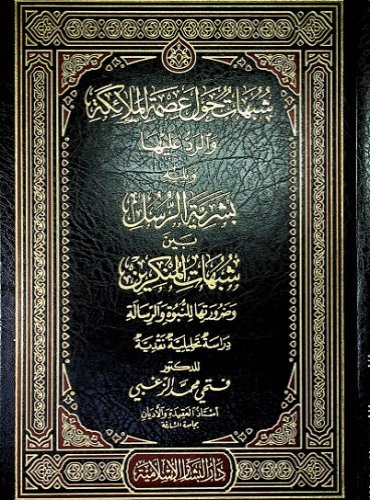 شبهات حول عصمة الملائكة
والرد عليها
ويليه
بشرية الرسل
بين
شبهات المنكرين
وضرورتها للنبوة والرسالة
دراسة تحليلية نقدية
للدكتور
فتحي محمد الزغبي
أستاذ العقيدة والأديان
بجامعة الشارقة
دار البشائر الإسلامية